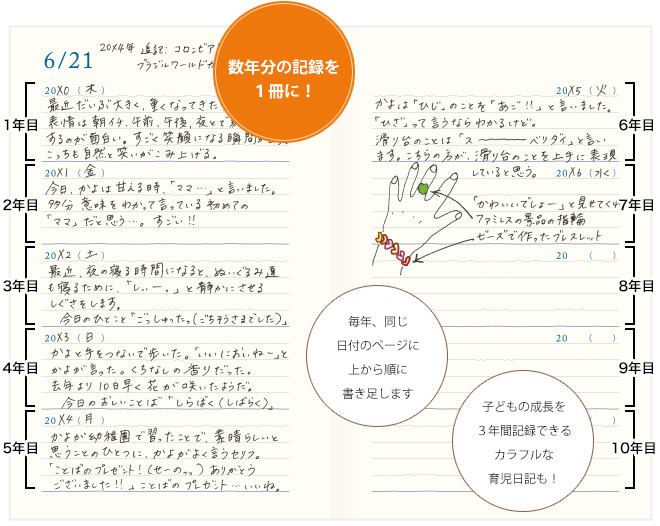 6/21
20X4年 追記:コロンビア
ブラジルワールドカ
数年分の記録を
1冊に！
1年目
20X0（木）
最近だいぶ大きく、重くなってきた
表情は朝イチ、午前、午後、夜とで
するのが面白い。すごく笑顔になる瞬間が
こっちも自然と笑いがこみ上げる。
2年目
20X1（金）
今日、かよは甘える時、「ママ…」と言いました。
多分意味をわかって言っている初めての
「ママ」だと思う…。すごい!!
3年目
20X2（土）
最近、夜の寝る時間になると、ぬいぐるみ達
も寝るために、「しぃーっ」と静かにさせる
しぐさをします。
今日のひとこと「ごっしゅったっ(ごちそうさまでした)」
4年目
20X3（日）
かよと手をつないで歩いた。「いいにおいねー」と
かよが言った。くちなしの香りだった。
去年より10日早く花が咲いたようだ。
今日のおしいことば「しらばく(しばらく)」
5年目
20X4（月）
かよが幼稚園で習ったことで、素晴らしいと
思うことのひとつに、かよがよく言うセリフ。
「ことばのプレゼント！(せーのっっ)ありがとう
ございました!!」ことばのプレゼント…いいね。
6年目
20X5（火）
かよは「ひじ」のことを「あご!!」と言いました。
「ひざ」って言うならわかるけど。
滑り台のことは「スーーーベリダイ」と言い
ます。こちらの方が、滑り台のことを上手に表現
していると思う。
7年目
20X6（水）
「かわいいでしょー」と見せてく
ファミレスの景品の指輪
ビーズで作ったブレスレット
8年目
20 （ ）
9年目
20 （ ）
10年目
毎年、同じ
日付のページに
上から順に
書き足します
子どもの成長を
3年間記録できる
カラフルな
育児日記も！